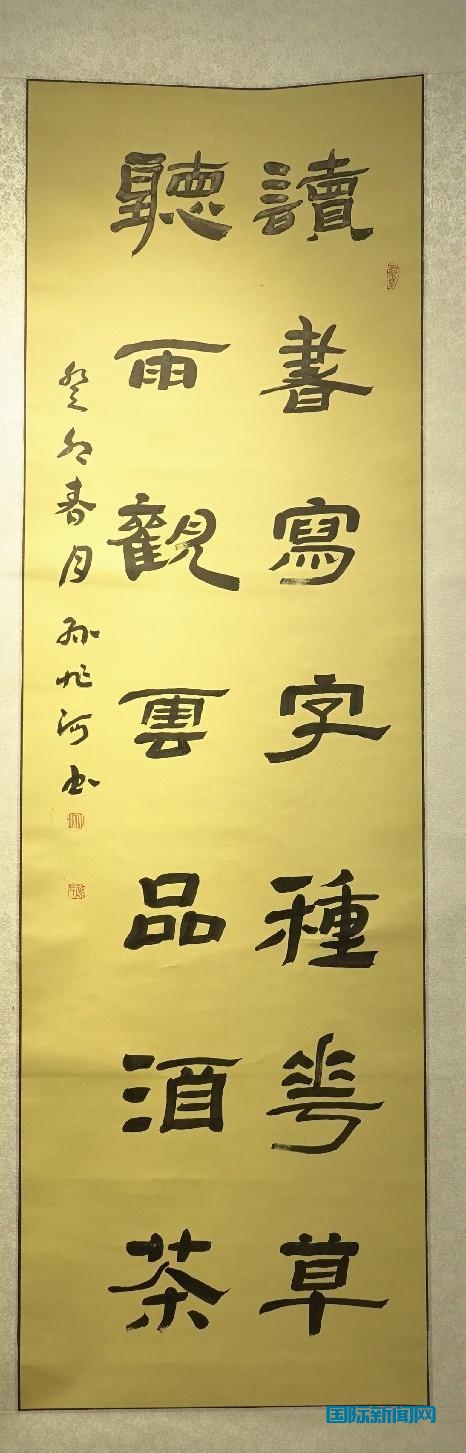 讀書寫字種花草
聽雨觀雲品酒茶
癸卯春月孙小河书
国际新闻网